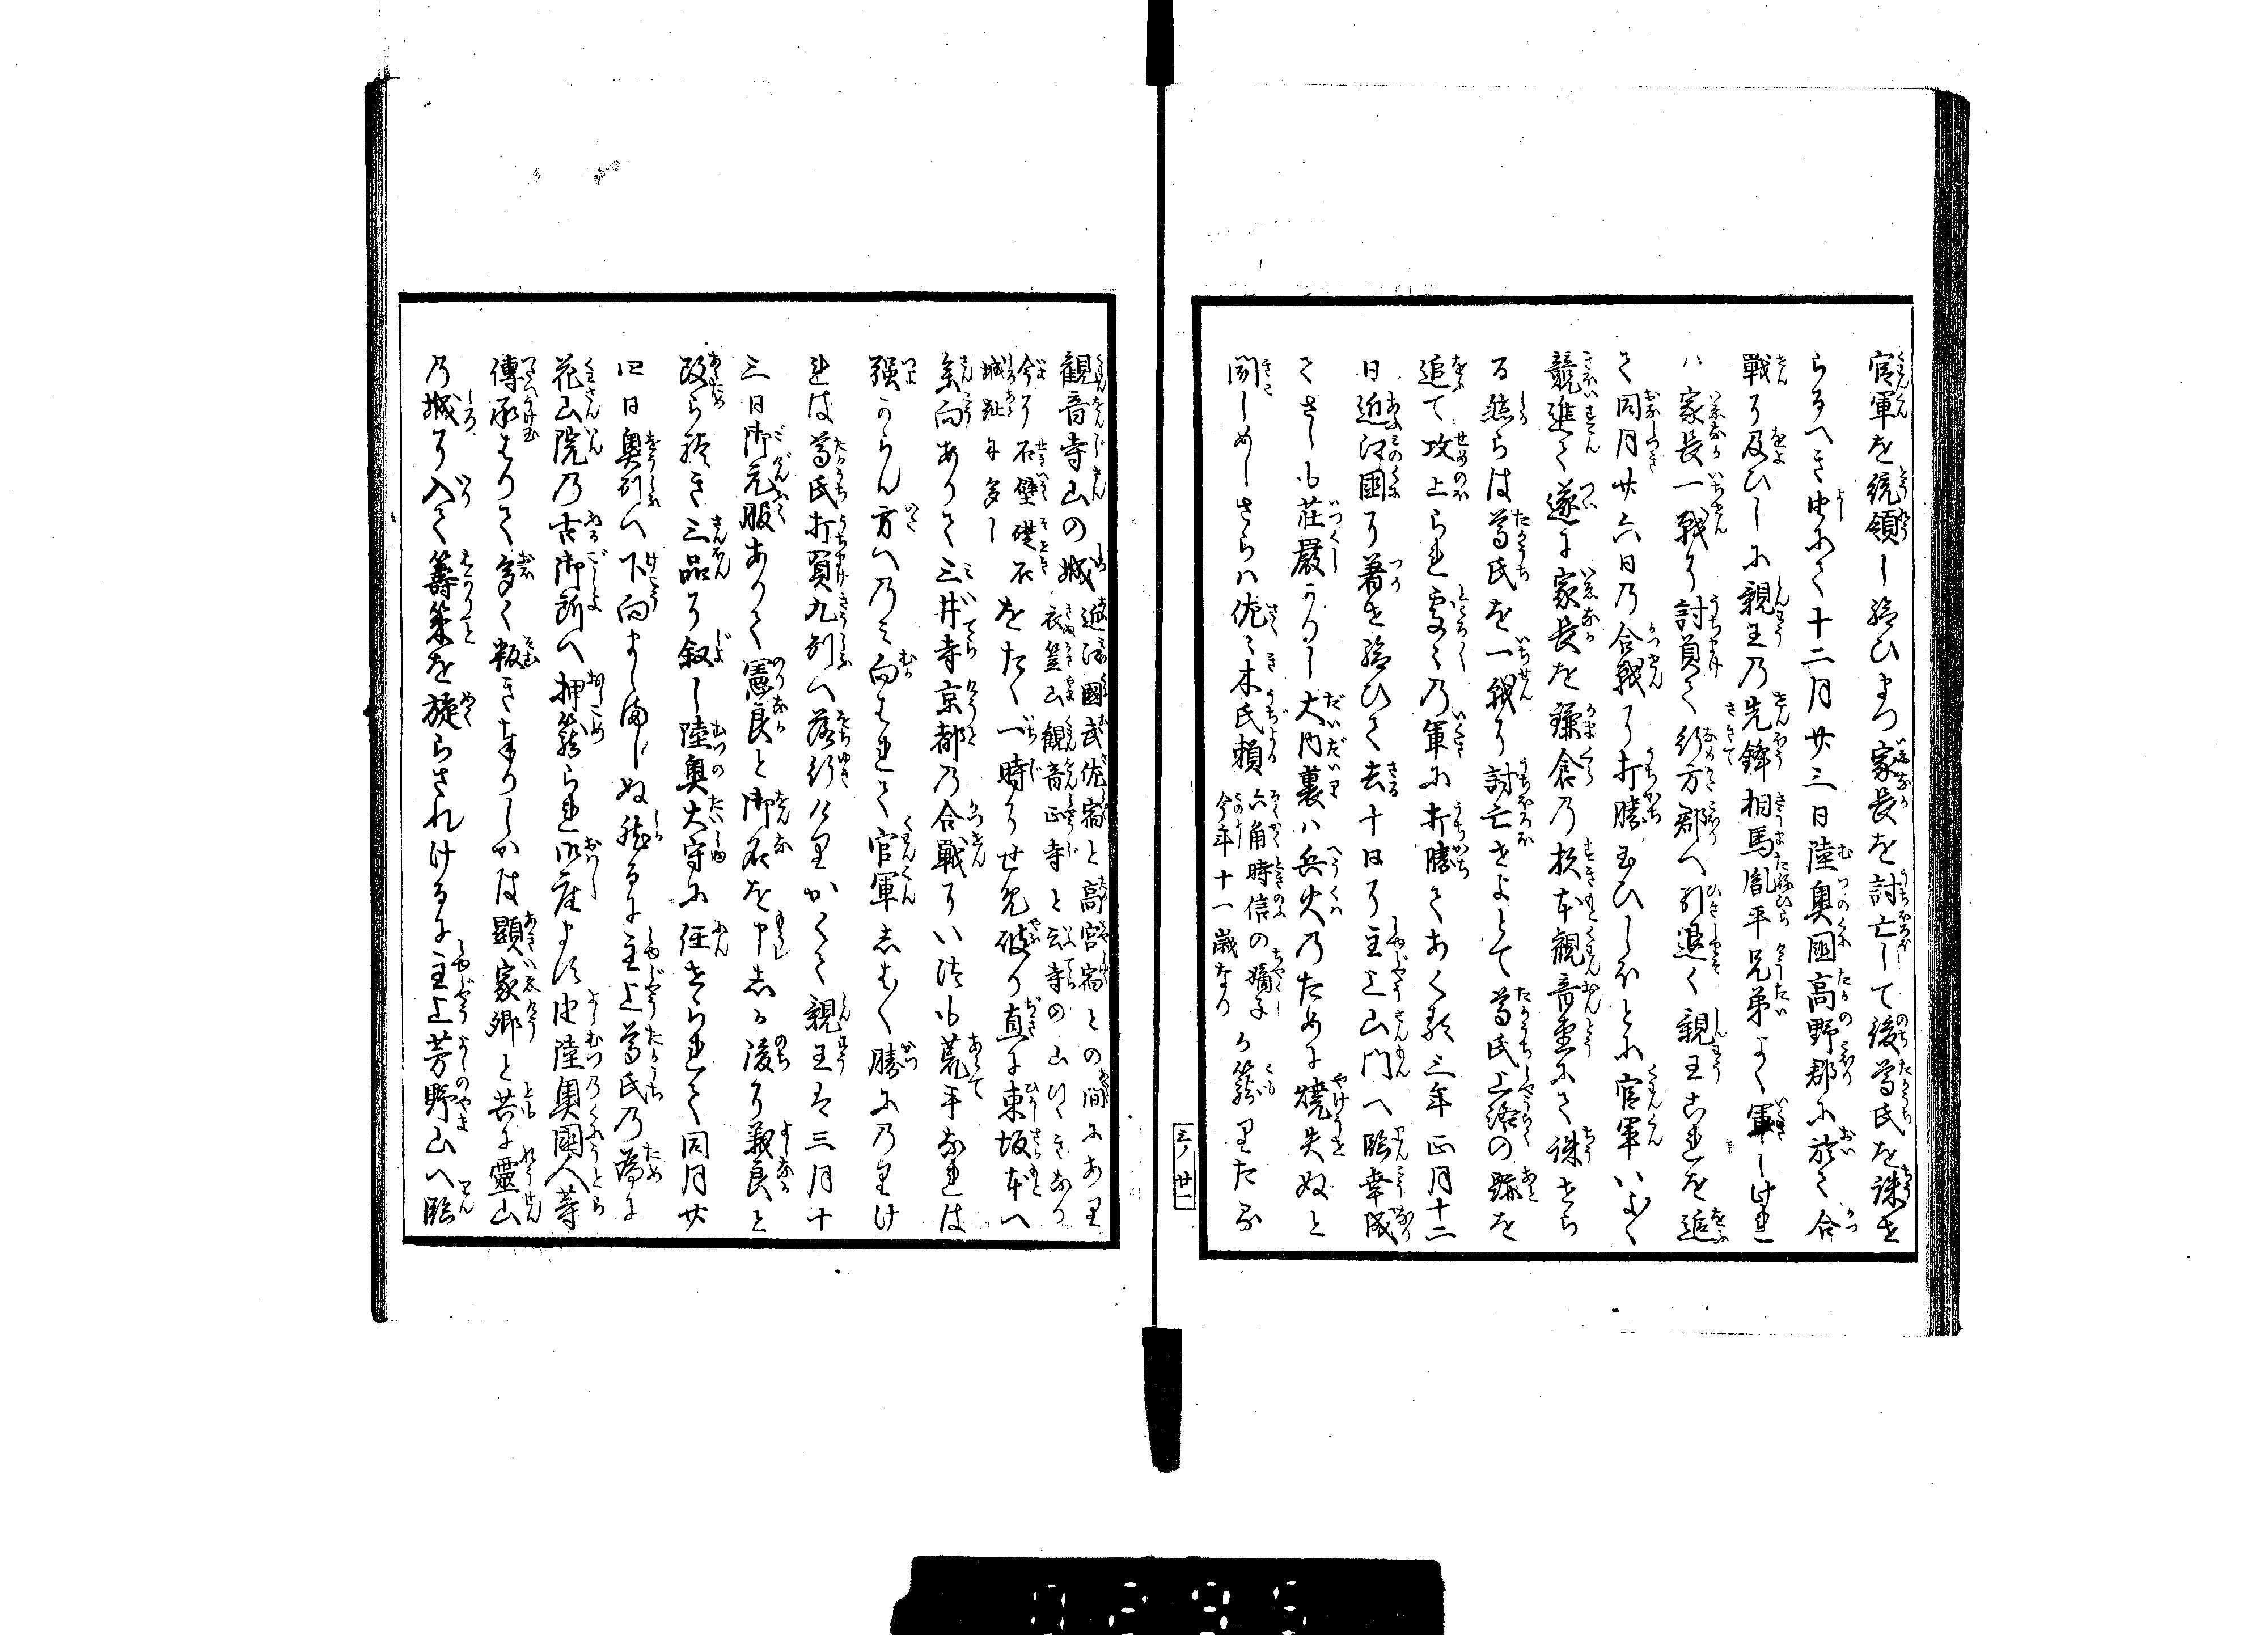 官軍を統領し給ひまつ家長を討亡して後尊氏を誅せ
らるへき由にて十二月廿三日陸奥國高野郡に於て合
戰に及ひしに親王乃先鋒相馬胤平兄弟よく軍しけれ
ハ家長一戰に討負て行方郡へ引退く親王これを追
て同月廿六日乃合戰に打勝玉ひしかとに官軍いよ〱
競進て遂に家長を鎌倉乃杉本觀音堂にて誅せら
る然らは尊氏を一戰に討亡せよとて尊氏上洛の跡を
追て攻上られ處〻乃軍に打勝てあくる三年正月十二
日近江國に著せ給ひて去十日に主上山門へ臨幸成
てさしも荘嚴かりし大内裏ハ兵火乃ために燒失ぬと
聞しめしさらハ佐〻木氏頼六角時信の嫡子今年十一歳なりか籠りたる
三ノ廿一
觀音寺山の城近江國武佐宿と高宮宿との間にあり衣笠山觀音正寺と云寺の山つゝきなり今に石壁礎石城趾に多しをたゝ一時にせめ破り直に東坂本へ
参向ありて三井寺京都乃合戰にいつも荒手なれは
強からん方へ乃み向はれて官軍しはく勝に乃りけ
れは尊氏打負九州へ落行けりかくて親王は三月十
三日御元服ありて憲良と御名を申しか後に義良と
改らるき三品に叙し陸奥大守に任せられて同月廿
四日奥州へ下向ましましぬ然るに主上尊氏乃為に
花山院乃古御所へ押籠られ御座ます由陸奥國人等
傳承はりて多く叛き奉りしかは顯家卿と共に靈山
乃城に入て籌策を旋らされけるに主上芳野山へ臨